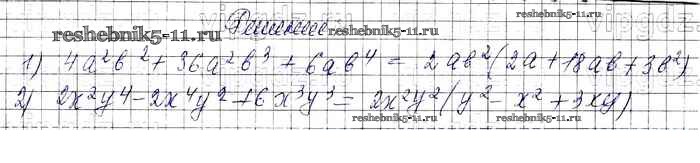 Решение
reshebnik5-11.ru
reshebnik5-11.ru
1) 4a²b² + 36a²b³ + 6ab⁴ = 2ab²(2a + 18ab + 3b²)
2) 2x²y⁴ - 2x⁴y² + 6x³y³ = 2x²y²(y² - x² + 3xy)
reshebnik5-11.ru
reshebnik5-11.ru